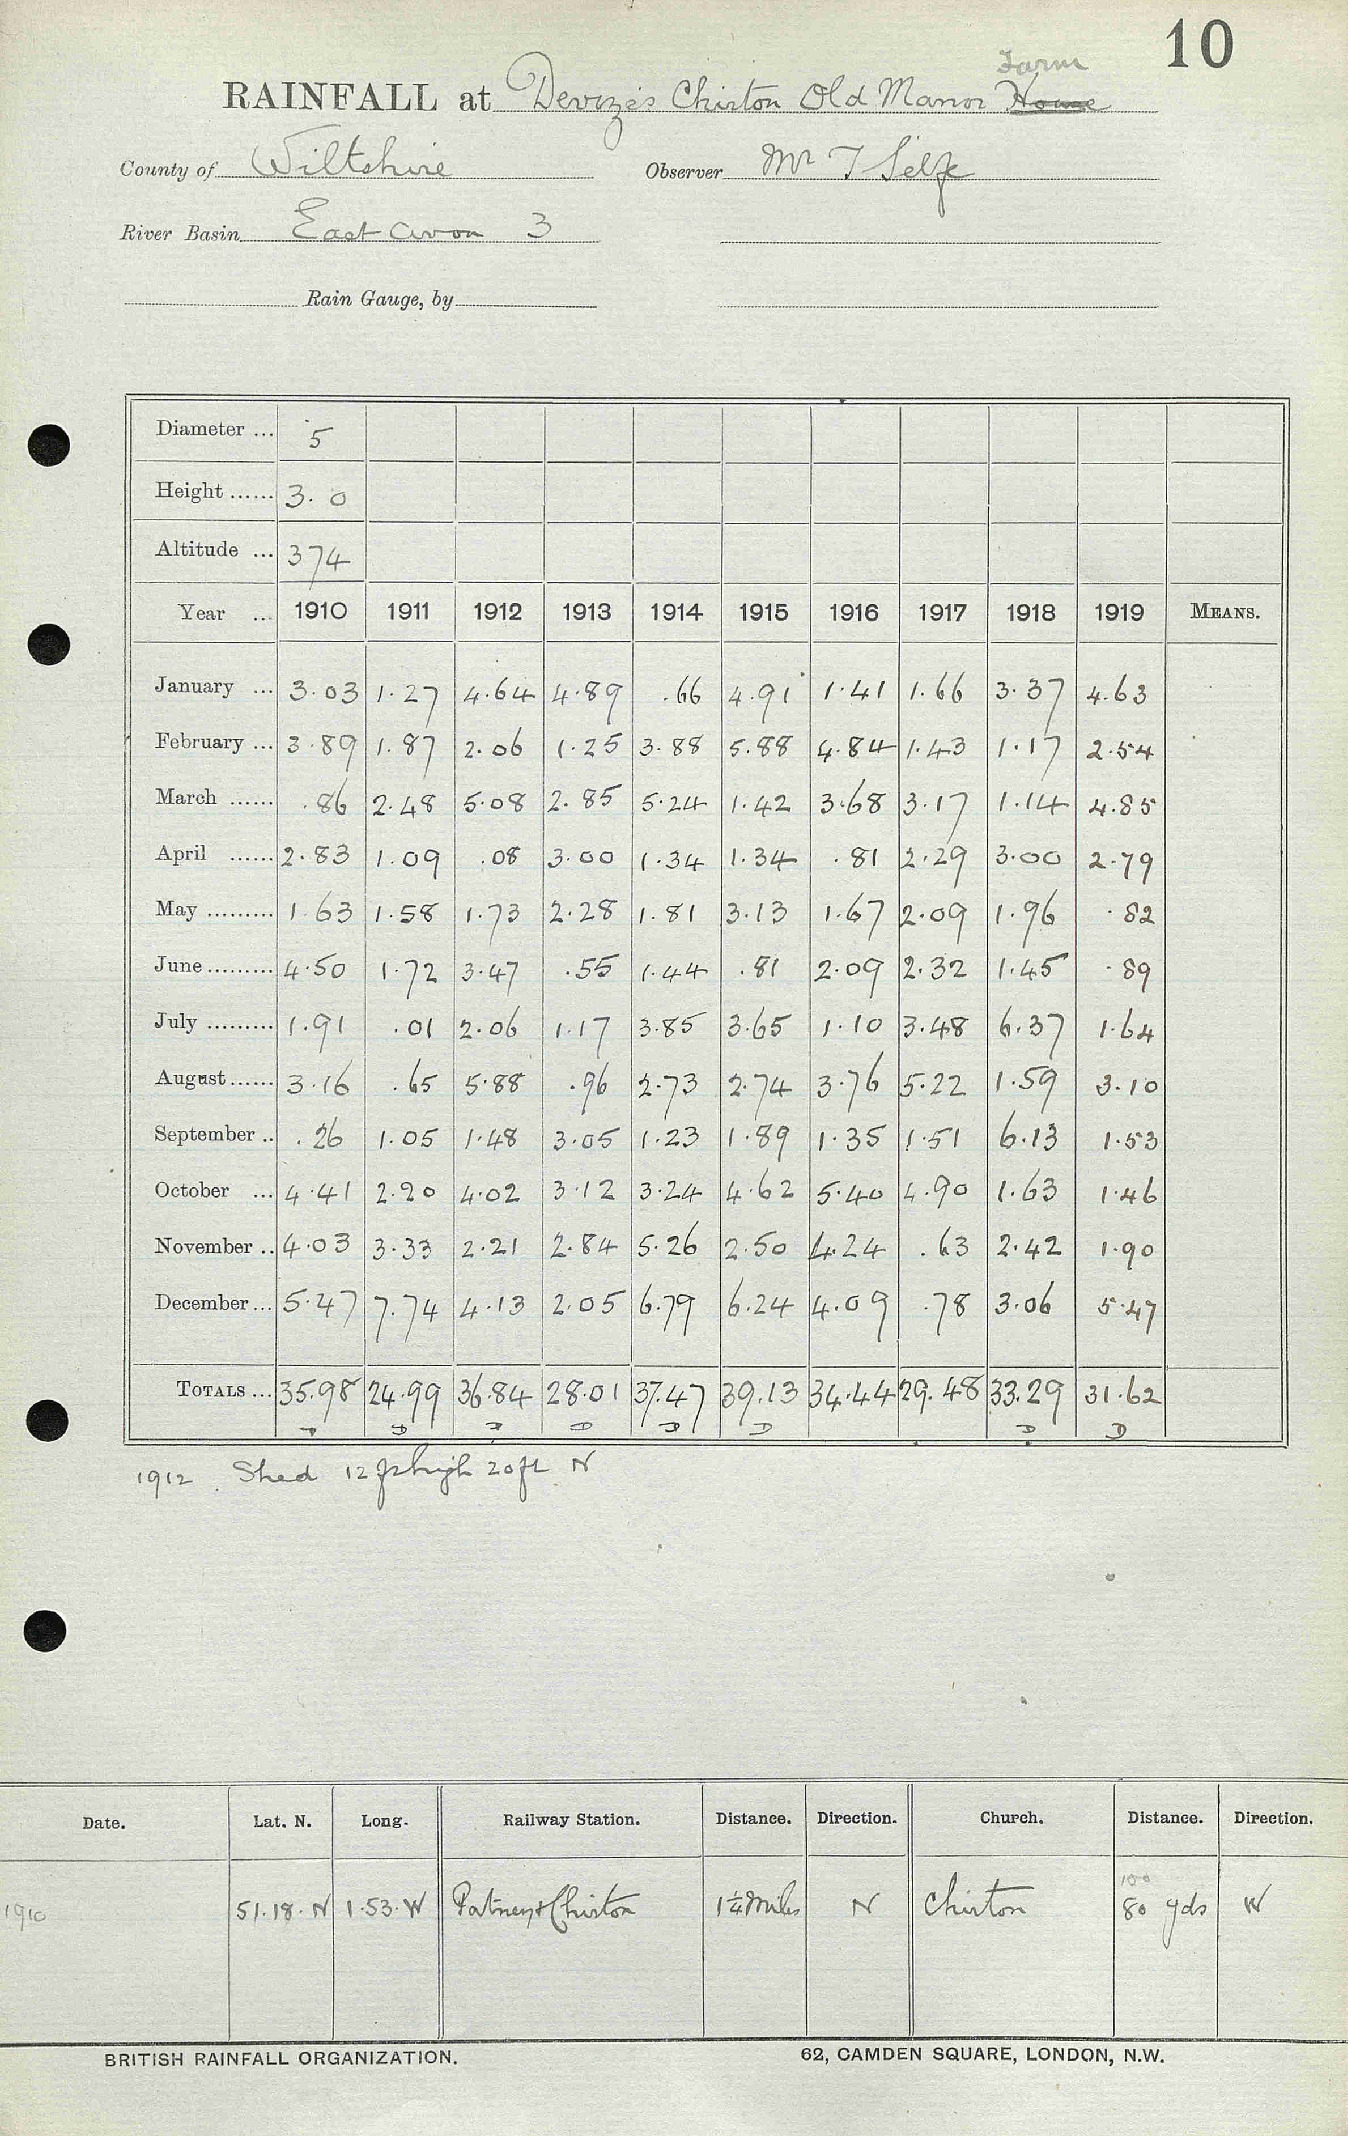 10
Farm
RAINFALL at Devizes Chirton Old Manor House
County of Wiltshire Observer Mr T Selfe
River Basin East Avon 3
Rain Gauge, by
Diameter ... 5
Height ...... 3.0
Altitude ... 374
Year ... 1910 1911 1912 1913 1914 1915 1916 1917 1918 1919 MEANS.
January ... 3.03 1.27 4.64 4.89 .66 4.91 1.41 1.66 3.37 4.63
February ... 3.89 1.87 2.06 1.25 3.88 5.88 4.84 1.43 1.17 2.54
March ...... .86 2.48 5.08 2.85 5.24 1.42 3.68 3.17 1.14 4.85
April ...... 2.83 1.09 .08 3.00 1.34 1.34 .81 2.29 3.00 2.79
May ......... 1.63 1.58 1.73 2.28 1.81 3.13 1.67 2.09 1.96 .82
June ......... 4.50 1.72 3.47 .55 1.44 .81 2.09 2.32 1.45 .89
July ......... 1.91 .01 2.06 1.17 3.85 3.65 1.10 3.48 6.37 1.64
August ...... 3.16 .65 5.88 .96 2.73 2.74 3.76 5.22 1.59 3.10
September .. .26 1.05 1.48 3.05 1.23 1.89 1.35 1.51 6.13 1.53
October ... 4.41 2.20 4.02 3.12 3.24 4.62 5.40 4.90 1.63 1.46
November .. 4.03 3.33 2.21 2.84 5.26 2.50 4.24 .63 2.42 1.90
December ... 5.47 7.74 4.13 2.05 6.79 6.24 4.09 .78 3.06 5.47
TOTALS ... 35.98 24.99 36.84 28.01 37.47 39.13 34.44 29.48 33.29 31.62
D D D D D D D D
1912. Shed 12 ft high 20 ft N
Date. Lat. N. Long. Railway Station. Distance. Direction. Church. Distance. Direction.
100
1910 51.18.N 1.53.W Patney & Chirton 1¼ Miles N Chirton 80 yds W
BRITISH RAINFALL ORGANIZATION. 62, CAMDEN SQUARE, LONDON, N.W.